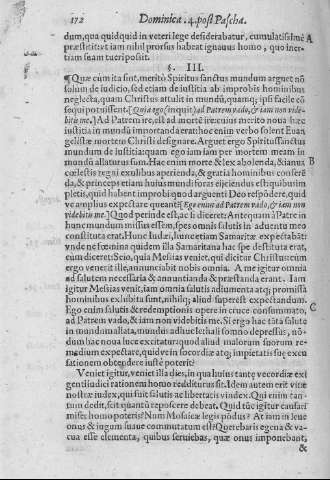 172 Dominica .4. post Pascha.
dum, qua quidquid in veteri lege desiderabatur, cumulatissimè
præstitit: vt iam nihil prorsus habeat ignauus homo, quo iner-
tiam suam tueri possit.
§. III.
¶Quæ cùm ita sint, meritò Spiritus sanctus mundum arguet nõ
solùm de iudicio, sed etiam de iustitia ab improbis hominibus
neglecta, quam Christus attulit in mundũ, quamq; ipsi facile cõ
sequi potuissent. [Quia ego (inquit) ad Patrem vado, & iam non vide-
bitis me.] Ad Patrem ire, est ad mortẽ ire: cuius merito noua hæc
iustitia in mundũ importanda erat: hoc enim verbo solent Euan
gelistæ mortem Christi designare. Arguet ergo Spiritus sanctus
mundum de iustitia: quam ego iam iam per mortem meam in
mundũ allaturus sum. Hac enim morte & lex abolenda, & ianua B
cœlestis regni exulibus aperienda, & gratia hominibus conferẽ
da, & princeps etiam huius mundi foras eijciendus est: quibus im
pletis, quid habent improbi quo d arguenti Deo respõdere, quid
ve amplius expectare queant? [Ego enim ad Patrem vado, & iam non
videbitis me.] Quod perinde est, ac si diceret: Antequam à Patre in
hunc mundum missus essem, spes omnis salutis in aduentu meo
constituta erat. Hunc Iudæi, hunc etiam Samaritæ expectabãt:
vnde ne fœmina quidem illa Samaritana hac spe destituta erat,
cùm diceret: Scio, quia Messias veniet, qui dicitur Christus: cùm
ergo venerit ille, annunciabit nobis omnia. A me igitur omnia
ad salutem necessaria & annuntianda & præstanda erant. Iam
igitur Messias venit, iam omnia salutis adiumenta atq; promissa
hominibus exhibita sunt, nihilq; aliud superest expectandum.
Ego enim salutis & redemptionis opere in cruce consummato, C
ad Patrem vado, & iam non videbitis me. Si ergo hac tãta salute
in mundum allata, mundus adhuc lethali somno depressus, nõ-
dum hac noua luce excitatur: quod aliud malorum suorum re-
medium expectare, quid ve in socordiæ atq; impietatis suæ excu
sationem obtendere iuste poterit?
Veniet igitur, veniet illa dies, in qua huius tantę vecordiæ exi
gentis iudici rationem homo redditurus sit. Idem autem erit vitæ
nostræ iudex, qui fuit salutis ac libertatis vindex. Qui enim tan-
tum dedit, scit quantũ reposcere debeat. Quid tũc igitur causari
miser homo poteris? Num Mosaicæ legis põdus? At iam in leue
onus & iugum suaue commutatum est: Querebaris egena & va-
cua esse elementa, quibus seruiebas, quæ onus imponebant,
&